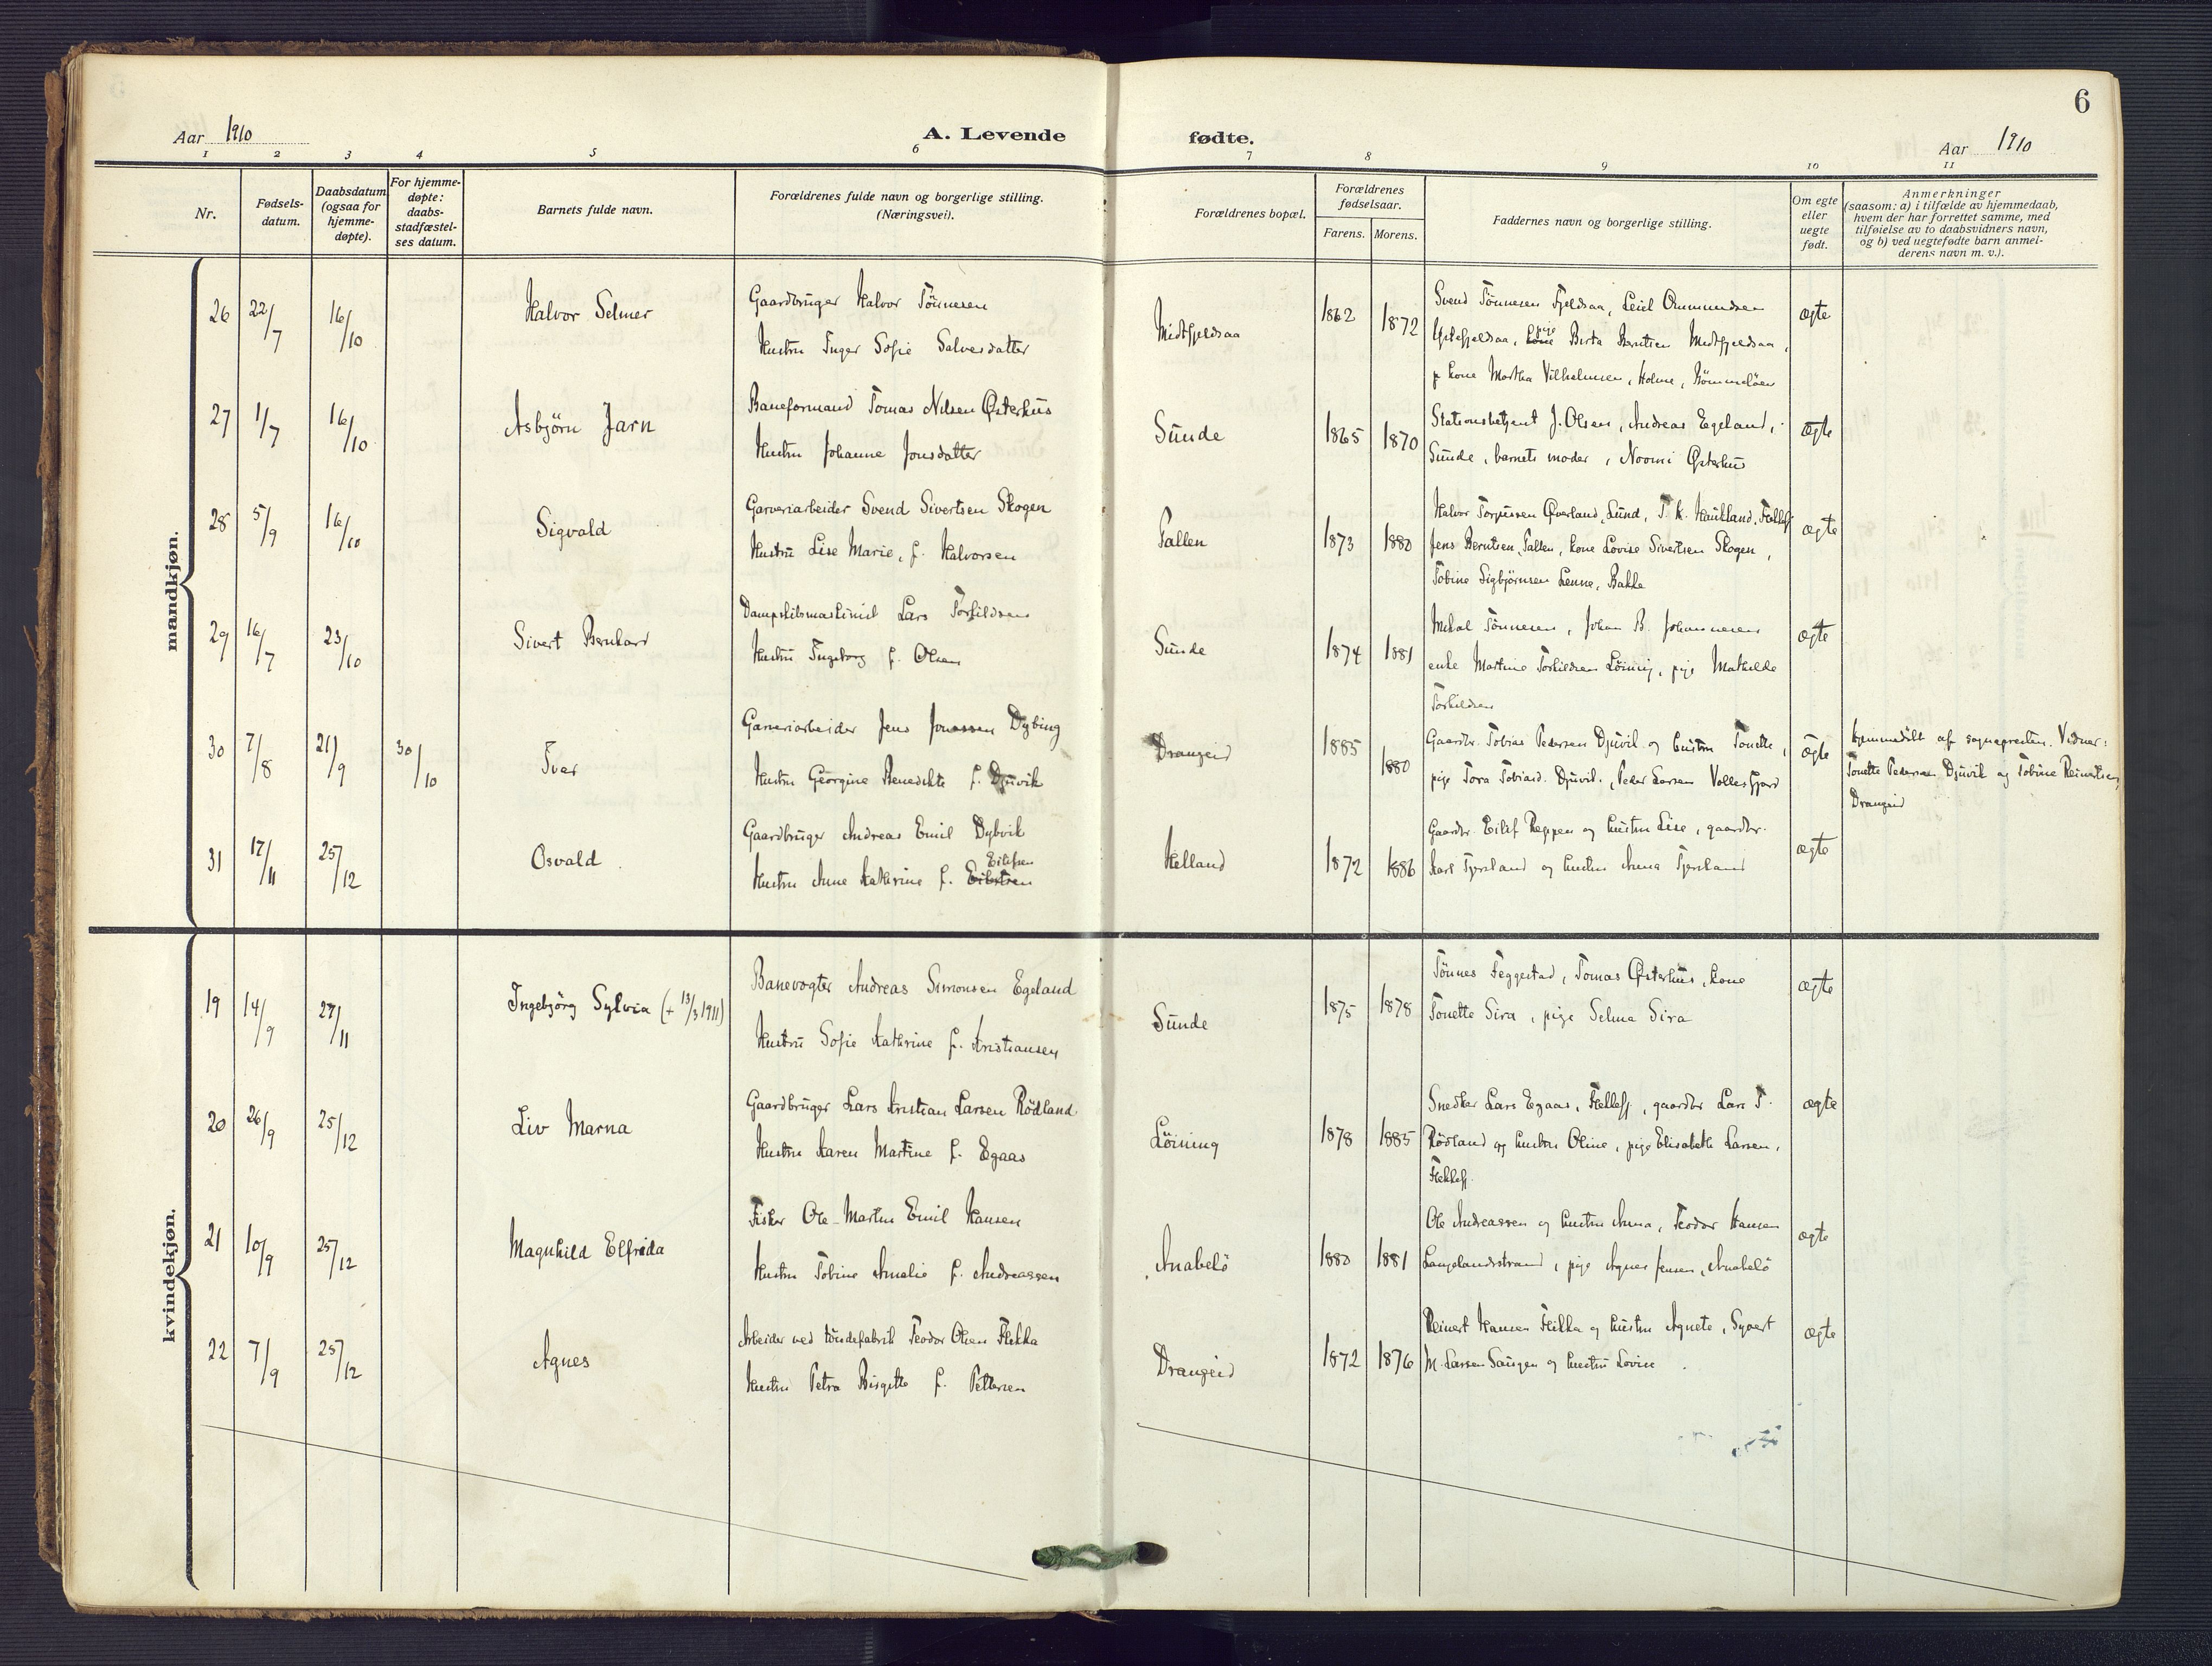 6
Aar 1910
A. Levende fødte.
Aar 1910
1 2 3 4 5 6 7 8 9 10 11
Nr.
Fødsels-
datum.
Daabsdatum
(ogsaa for
hjemme-
døpte).
For hjemme-
døpte:
daabs-
stadfæstel-
ses datum.
Barnets fulde navn.
Forældrenes fulde navn og borgerlige stilling.
(Næringsvei).
Forældrenes bopæl.
Forældrenes
fødselsaar.
Farens. Morens.
Faddernes navn og borgerlige stilling.
Om egte
eller
uegte
født.
Anmerkninger
(saasom: a) i tilfælde av hjemmedaab,
hvem der har forrettet samme, med
tilføielse av to daabsvidners navn,
og b) ved uegtefødte barn anmel-
derens navn m. v.).
mandkjøn.
26 22/7 16/10 Halvor Selmer
Gaardbruger Halvor Tönnesen
Hustru Inger Sofie Salvesdatter
Midtfjeldsaa 1862 1872
Svend Tönnesen Fjeldsaa, Leiel Ommundsen
Ystefjeldsaa, kone pige Berta Berntsen Midtfjeldsaa,
kone Martha Vilhelmsen, Holme,
ægte
27 1/7 16/10 Asbjörn Jarn
Baneformand Tomas Nilsen Østerhus
Hustru Johanne Jonsdatter
Sunde 1865 1870
Stationsbetjent J. Olsen, Andreas Egeland,
Sunde, barnets moder, Noomi Østerhus
ægte
28 5/9 16/10 Sigvald
Garveriarbeider Svend Sivertsen Skogen
Hustru Lise Marie, f. Halvorsen
Pallen 1873 1880
Halvor Torgersen Øverland, Lund, T. K. Haukland, Flekkefj
Jens Berntsen, Pallen, kone Lovise Sivertsen Skogen,
Tobine Sigbjörnsen Lenne, Bakke
ægte
29 16/7 23/10 Sivert Bernhard
Dampskibsmaskinist Lars Torkildsen
Hustru Ingeborg f. Olsen
Sunde 1874 1881
Mikal Tönnesen, Johan B. Johannesen
enke Martine Torkildsen Löining, pige Mathilde
Torkildsen
ægte
30 7/8 21/9 30/10 Ivar
Garveriarbeider Jens Jonassen Dybing
Hustru Georgine Benedikte f. Djuvik
Drangeid 1885 1880
Gaardbr. Tobias Pedersen Djuvik og hustru Tonette,
pige Tora Tobiasd. Djuvik, Peder Larsen Vollesfjord
ægte
hjemmedöbt af sognepresten. Vidner:
Tonette Pedersen Djuvik og Tobine Reinertsen,
Drangeid
31 17/11 25/12 Osvald
Gaardbruger Andreas Emil Dybvik
Eilifsen
Hustru Anne Kathrine f. Eilertsen
Helland 1872 1886
Gaardbr. Eilif Reppen og hustru Lise, gaardbr.
Karl Tjersland og hustru Anna Tjersland
ægte
kvindekjøn.
19 14/9 27/11 Ingebjörg Sylvia (+ 13/3 1911)
Banevogter Andreas Simonsen Egeland
Hustru Sofie Kathrine f. Kristiansen
Sunde 1875 1878
Tönnes Feggestad, Tomas Østerhus, kone
Tonette Sira, pige Selma Sira
ægte
20 26/9 25/12 Liv Marna
Gaardbruger Lars Kristian Larsen Rödland
Hustru Karen Martine f. Egaas
Löining 1878 1885
Snedker Lars Egaas, Flekkefj., gaardbr Lars T.
Rödland og hustru Oline, pige Elisabeth Larsen,
Flekkefj.
ægte
21 10/9 25/12 Magnhild Elfrida
Fisker Ole Martin Emil Hansen
Hustru Tobine Amalie f. Andreassen
Anabelö 1880 1881
Ole Andreassen og hustru Anna, Teodor Hansen
Langelandsstrand, pige Agnes Jensen, Anabelö
ægte
22 7/9 25/12 Agnes
Arbeider ved töndefabrik Teodor Olsen Flikka
Hustru Petra Birgitte f. Pettersen
Drangeid 1872 1876
Reinert Hansen Flikka og hustru Agnete, Syvert
M. Larsen Saugen og hustru Lovise
ægte